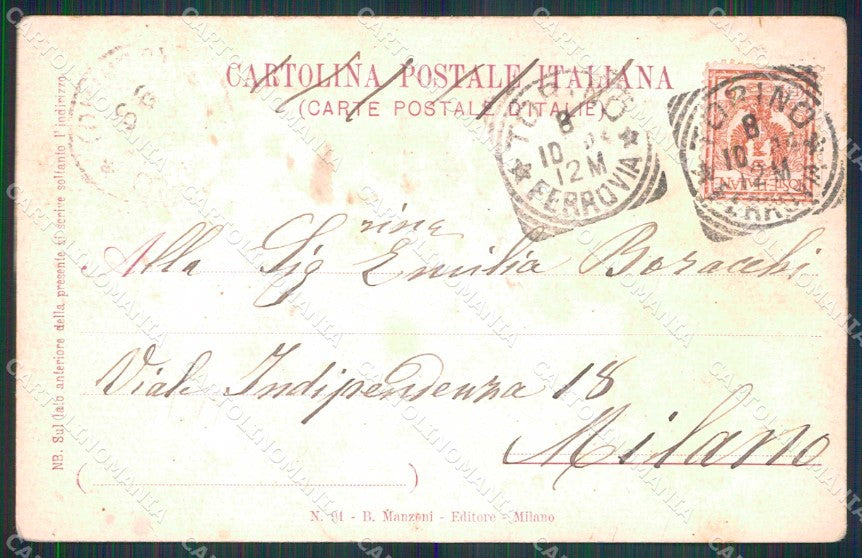 CARTOLINA POSTALE ITALIANA
(CARTE POSTALE D'ITALIE)
TORINO
8
10
12 M
FERROVIA
TORINO
8
10
12 M
FERROVIA
Alla Sig.rine Emilia Boracchi
Viale Indipendenza 18
Milano
N. 91 - B. Manzoni - Editore - Milano
NB. Sul lato anteriore della presente si scrive soltanto l'indirizzo
CARTOLINOMANIA